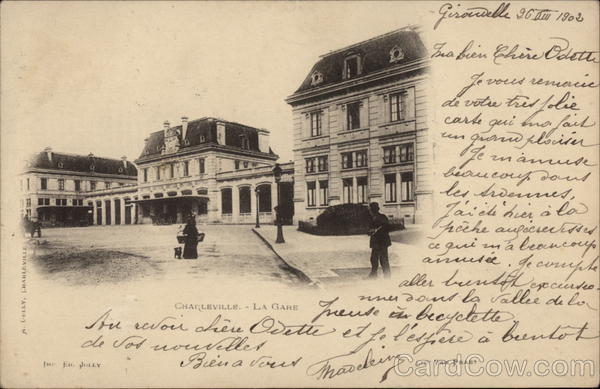 Gironelle, 26 VIII 1902
Ma bien Chère Odette
Je vous remercie
de votre très jolie
carte qui m'a fait
un grand plaisir
Je m'amuse
beaucoup dans
les Ardennes,
J'ai été hier à la
pêche aux écrevisses
ce qui m'a beaucoup
amusée. Je compte
aller bientôt excursion-
ner dans la vallée de la
Meuse à bicyclette
Au revoir chère Odette et je l'espère à bientôt
de vos nouvelles
Bien à vous
Madeleine
CHARLEVILLE. - LA GARE
IMP. ED. JOLLY
JOLLY, CHARLEVILLE
© CardCow.com